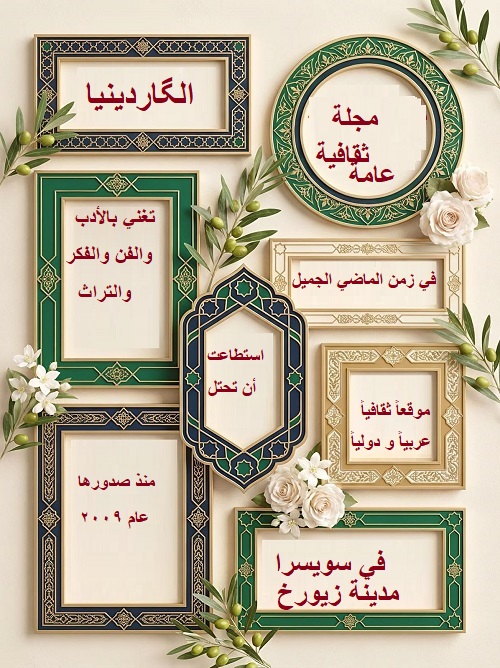 الگاردينيا
مجلة
ثقافية
عامة
تغني بالأدب
والفن والفكر
والتراث
في زمن الماضي الجميل
استطاعت
أن تحتل
موقعاً ثقافياً
عربياً و دولياً
منذ صدورها
عام ٢٠٠٩
في سويسرا
مدينة زيورخ